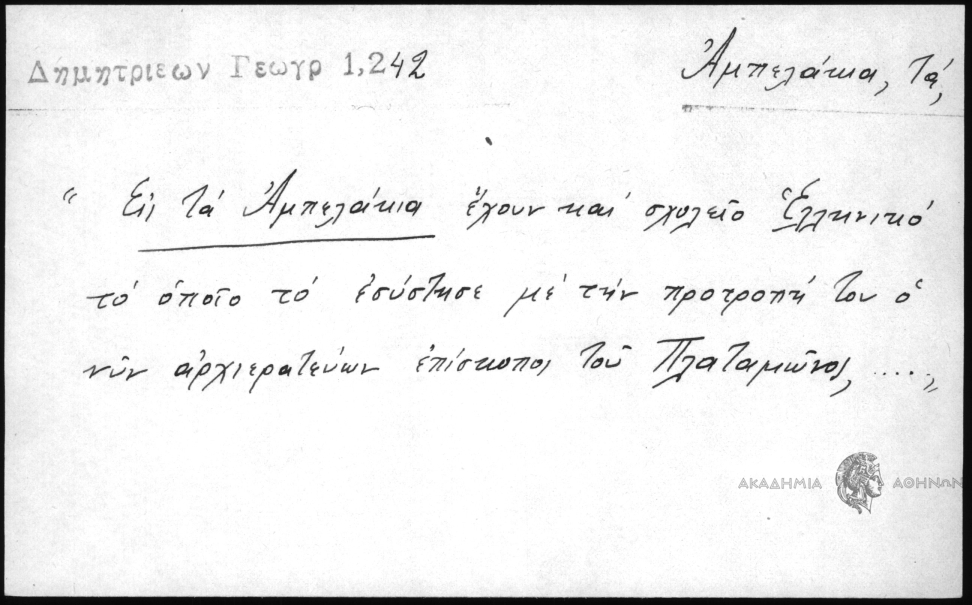 Δημητριεων Γεωγρ 1,242
Ἀμπελάκια, Τά,
“ Εἰς τά Ἀμπελάκια ἔχουν καί σχολεῖο Ἑλληνικό
τό ὁποῖο τό ἐσύστησε μέ τήν προτροπή του ὁ
νῦν ἀρχιερατεύων ἐπίσκοπος τοῦ Πλαταμῶνος, ....„
ΑΚΑΔΗΜΙΑ ΑΘΗΝΩΝ